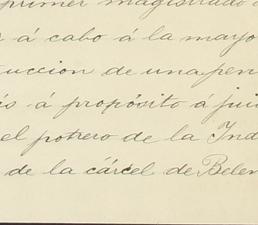 primer magistrado d
á cabo á la mayo
tuccion de una pen
ás á propósito á jui
el potrero de la Ind
de la cárcel de Belen